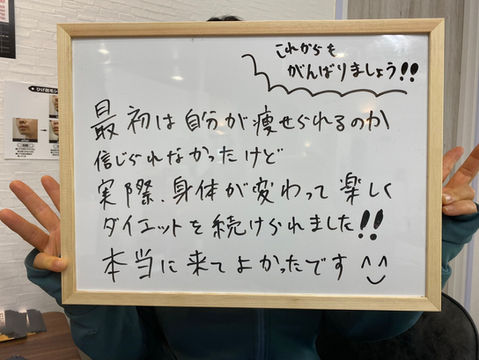 これからも
がんばりましょう!!
最初は自分が痩せられるのか
信じられなかったけど
実際、身体が変わって楽しく
ダイエットを続けられました!!
本当に来てよかったです ^^